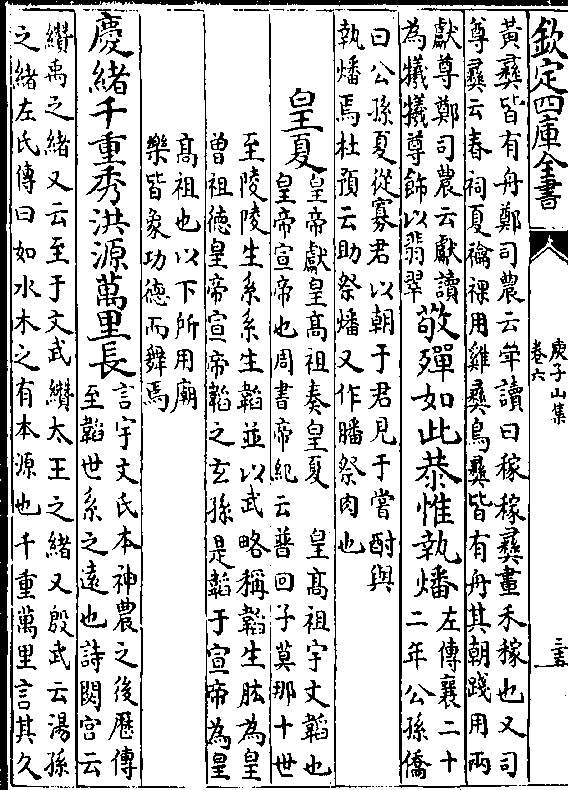 欽定四庫全書
庾子山集
卷六
三五
黄彝皆有舟鄭司農云斝讀曰稼稼彝畫禾稼也又司
尊彝云春祠夏禴祼用雞彝鳥彝皆有舟其朝踐用兩
獻尊鄭司農云獻讀
為犧犧尊飾以翡翠
敬殫如此恭惟執燔
左傳襄二十
二年公孫僑
曰公孫夏從寡君以朝于君見于嘗酎與
執燔焉杜預云助祭燔又作膰祭肉也
皇夏
皇帝獻皇高祖奏皇夏 皇高祖宇文韜也
皇帝宣帝也周書帝紀云普回子莫那十世
至陵陵生系系生韜並以武略稱韜生肱為皇
曾祖德皇帝宣帝韜之玄孫是韜于宣帝為皇
高祖也以下所用廟
樂皆象功德而舞焉
慶緒千重秀洪源萬里長
言宇文氏本神農之後歴傳
至韜世系之遠也詩閟宫云
纘禹之緒又云至于文武纘大王之緒又殷武云湯孫
之緒左氏傳曰如水木之有本源也千重萬里言其久